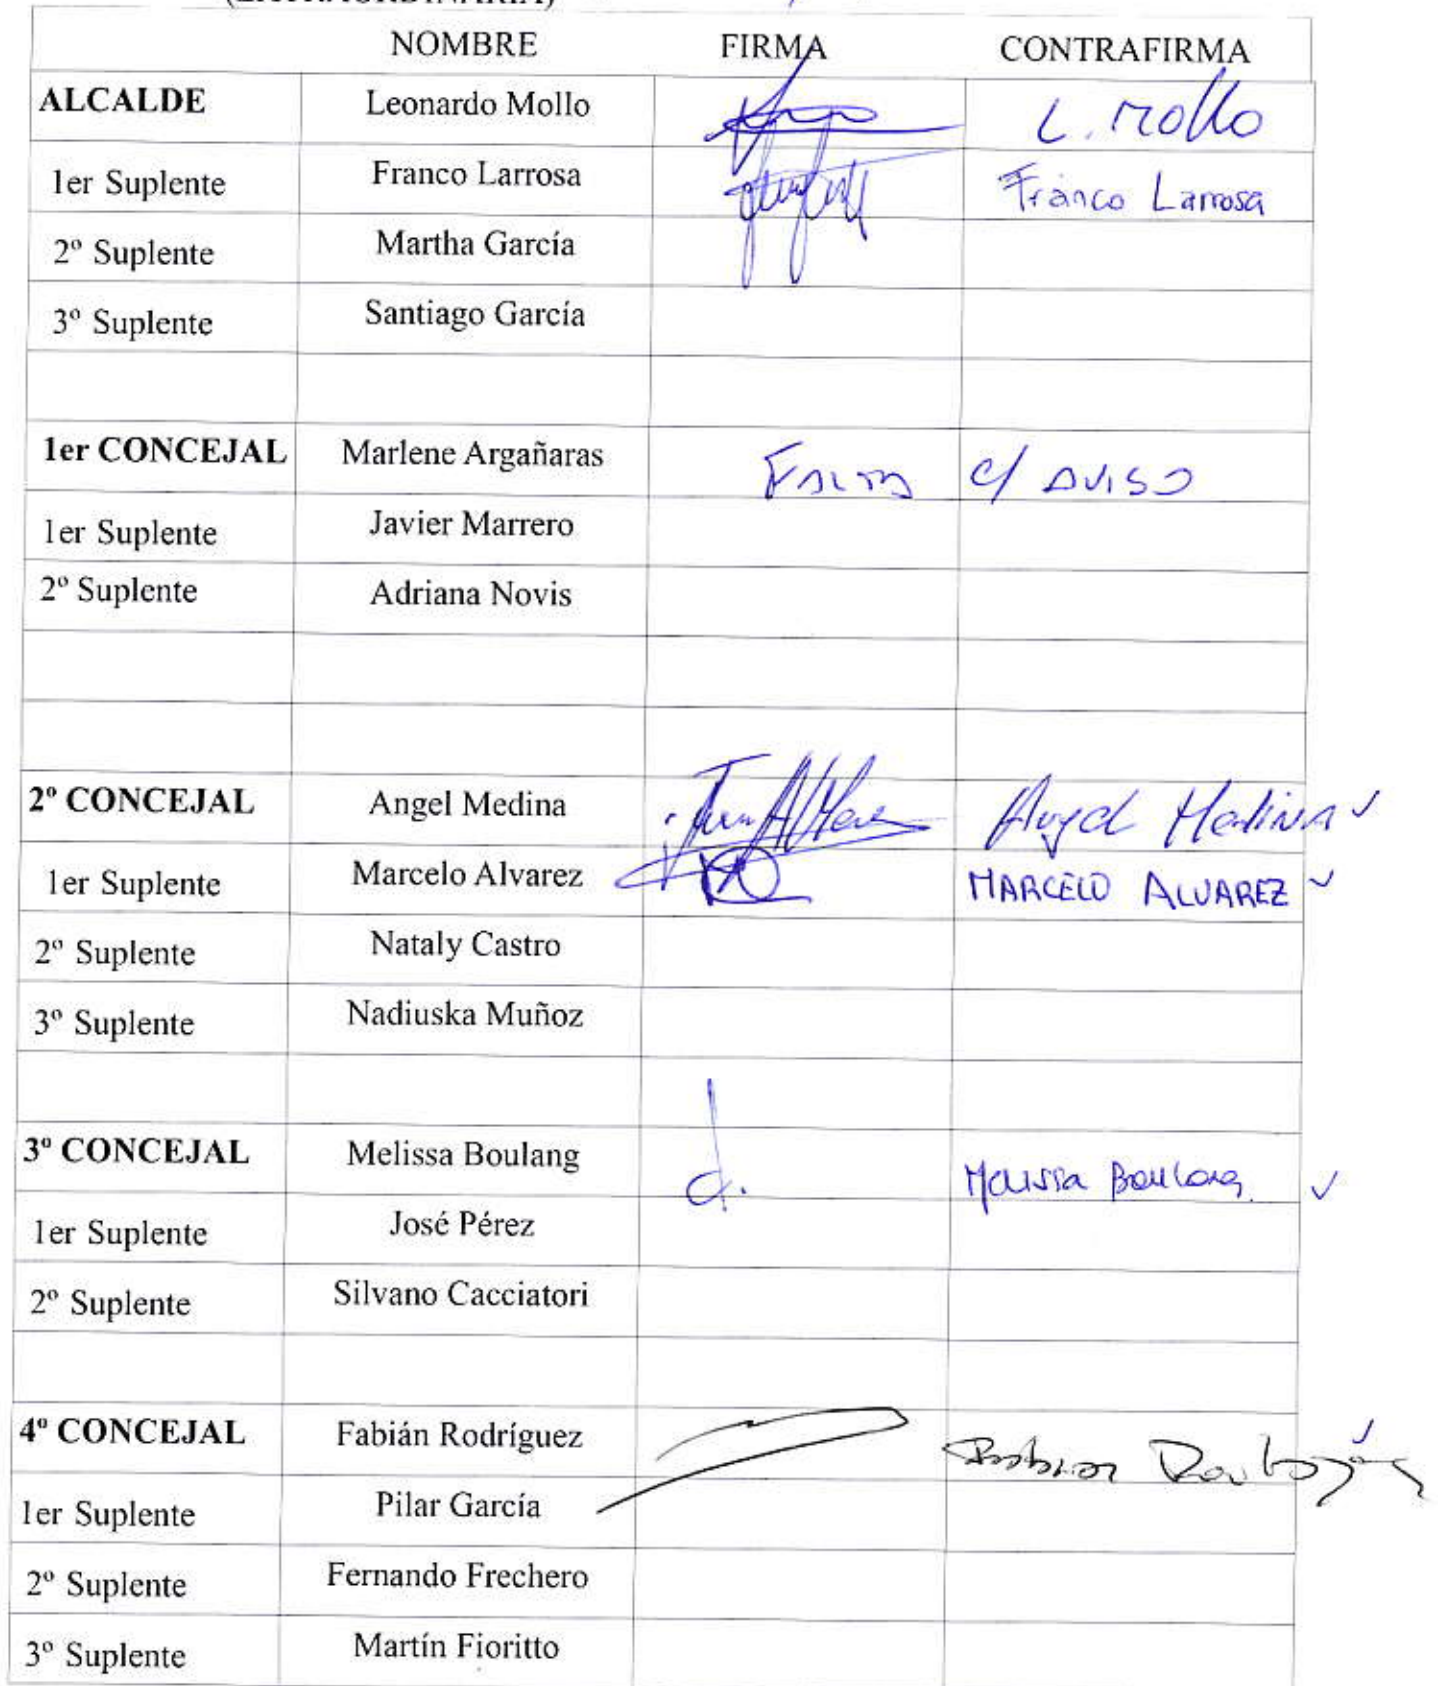 (EXTRAORDINARIA)
NOMBRE FIRMA CONTRAFIRMA
ALCALDE Leonardo Mollo L. Mollo
1er Suplente Franco Larrosa Franco Larrosa
2º Suplente Martha García
3º Suplente Santiago García
1er CONCEJAL Marlene Argañaras FALTA c/ AVISO
1er Suplente Javier Marrero
2º Suplente Adriana Novis
2º CONCEJAL Angel Medina Angel Medina
1er Suplente Marcelo Alvarez MARCELO ALVAREZ
2º Suplente Nataly Castro
3º Suplente Nadiuska Muñoz
3º CONCEJAL Melissa Boulang Melissa Boulang.
1er Suplente José Pérez
2º Suplente Silvano Cacciatori
4º CONCEJAL Fabián Rodríguez
1er Suplente Pilar García
2º Suplente Fernando Frechero
3º Suplente Martín Fioritto